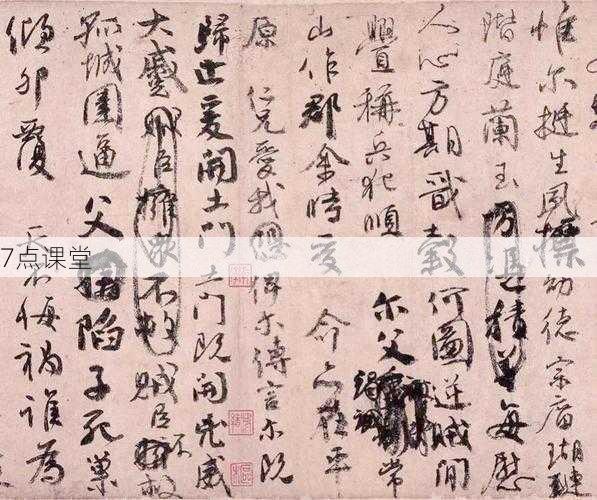 惟尔挺生夙標幼德宗廟瑚璉
階庭蘭玉方憑積善每慰
人心方期戩穀何圖逆賊間
釁稱兵犯順尔父竭誠常
山作郡余時受命亦在平
原仁兄愛我恐俾尔傳言尔既
歸止爰開土門土門既開兇威
大蹙賊臣擁衆不救賊臣不救
孤城圍逼父陷子死巢
傾卵覆天不悔禍誰為
7点课堂